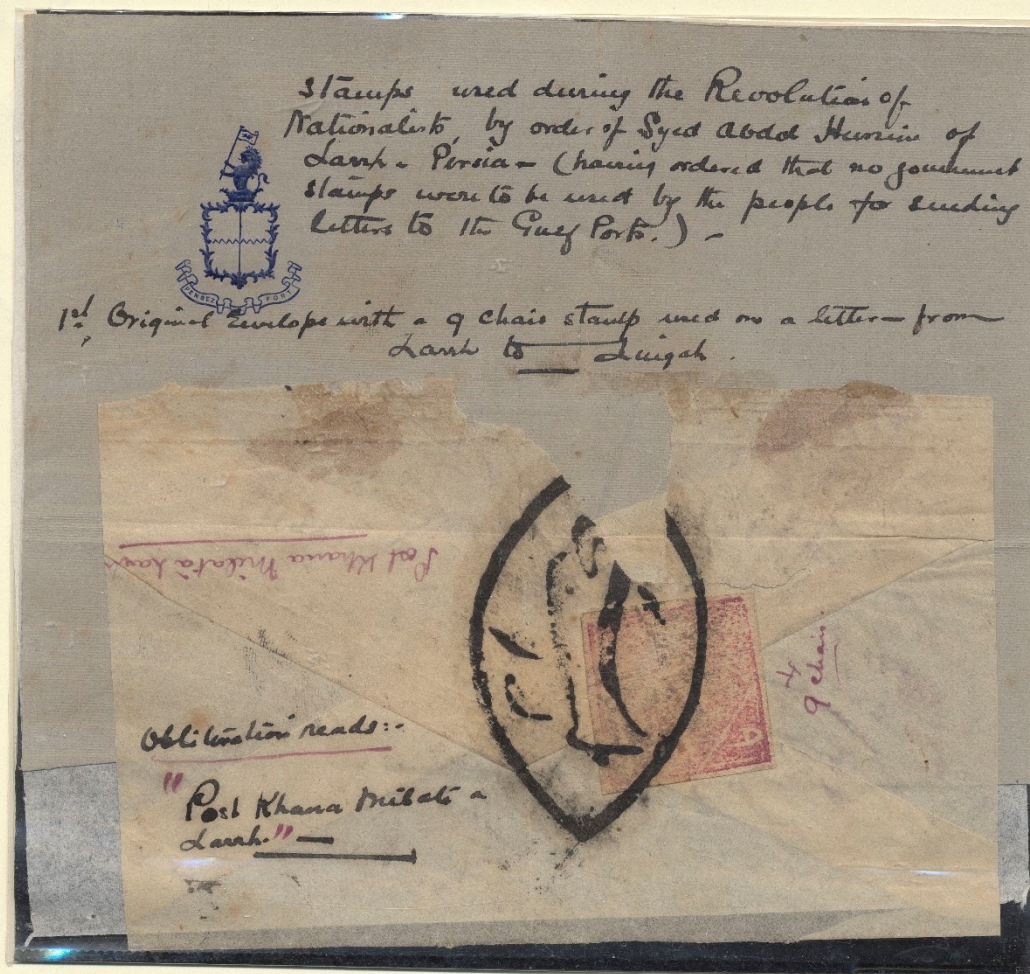 Stamps used during the Revolution of
Nationalists, by order of Syed Abdd Hussein of
Larrh - Persia - (having ordered that no government
stamps were to be used by the people for sending
letters to the Gulf Ports.) -
1st, Original Envelope with a 9 Chais stamp used on a letter from
Larrh to Lingah.
Post Khana Milat a Larrh
9 Chais
Obliteration reads:-
"Post Khana Milat a
Larrh." -